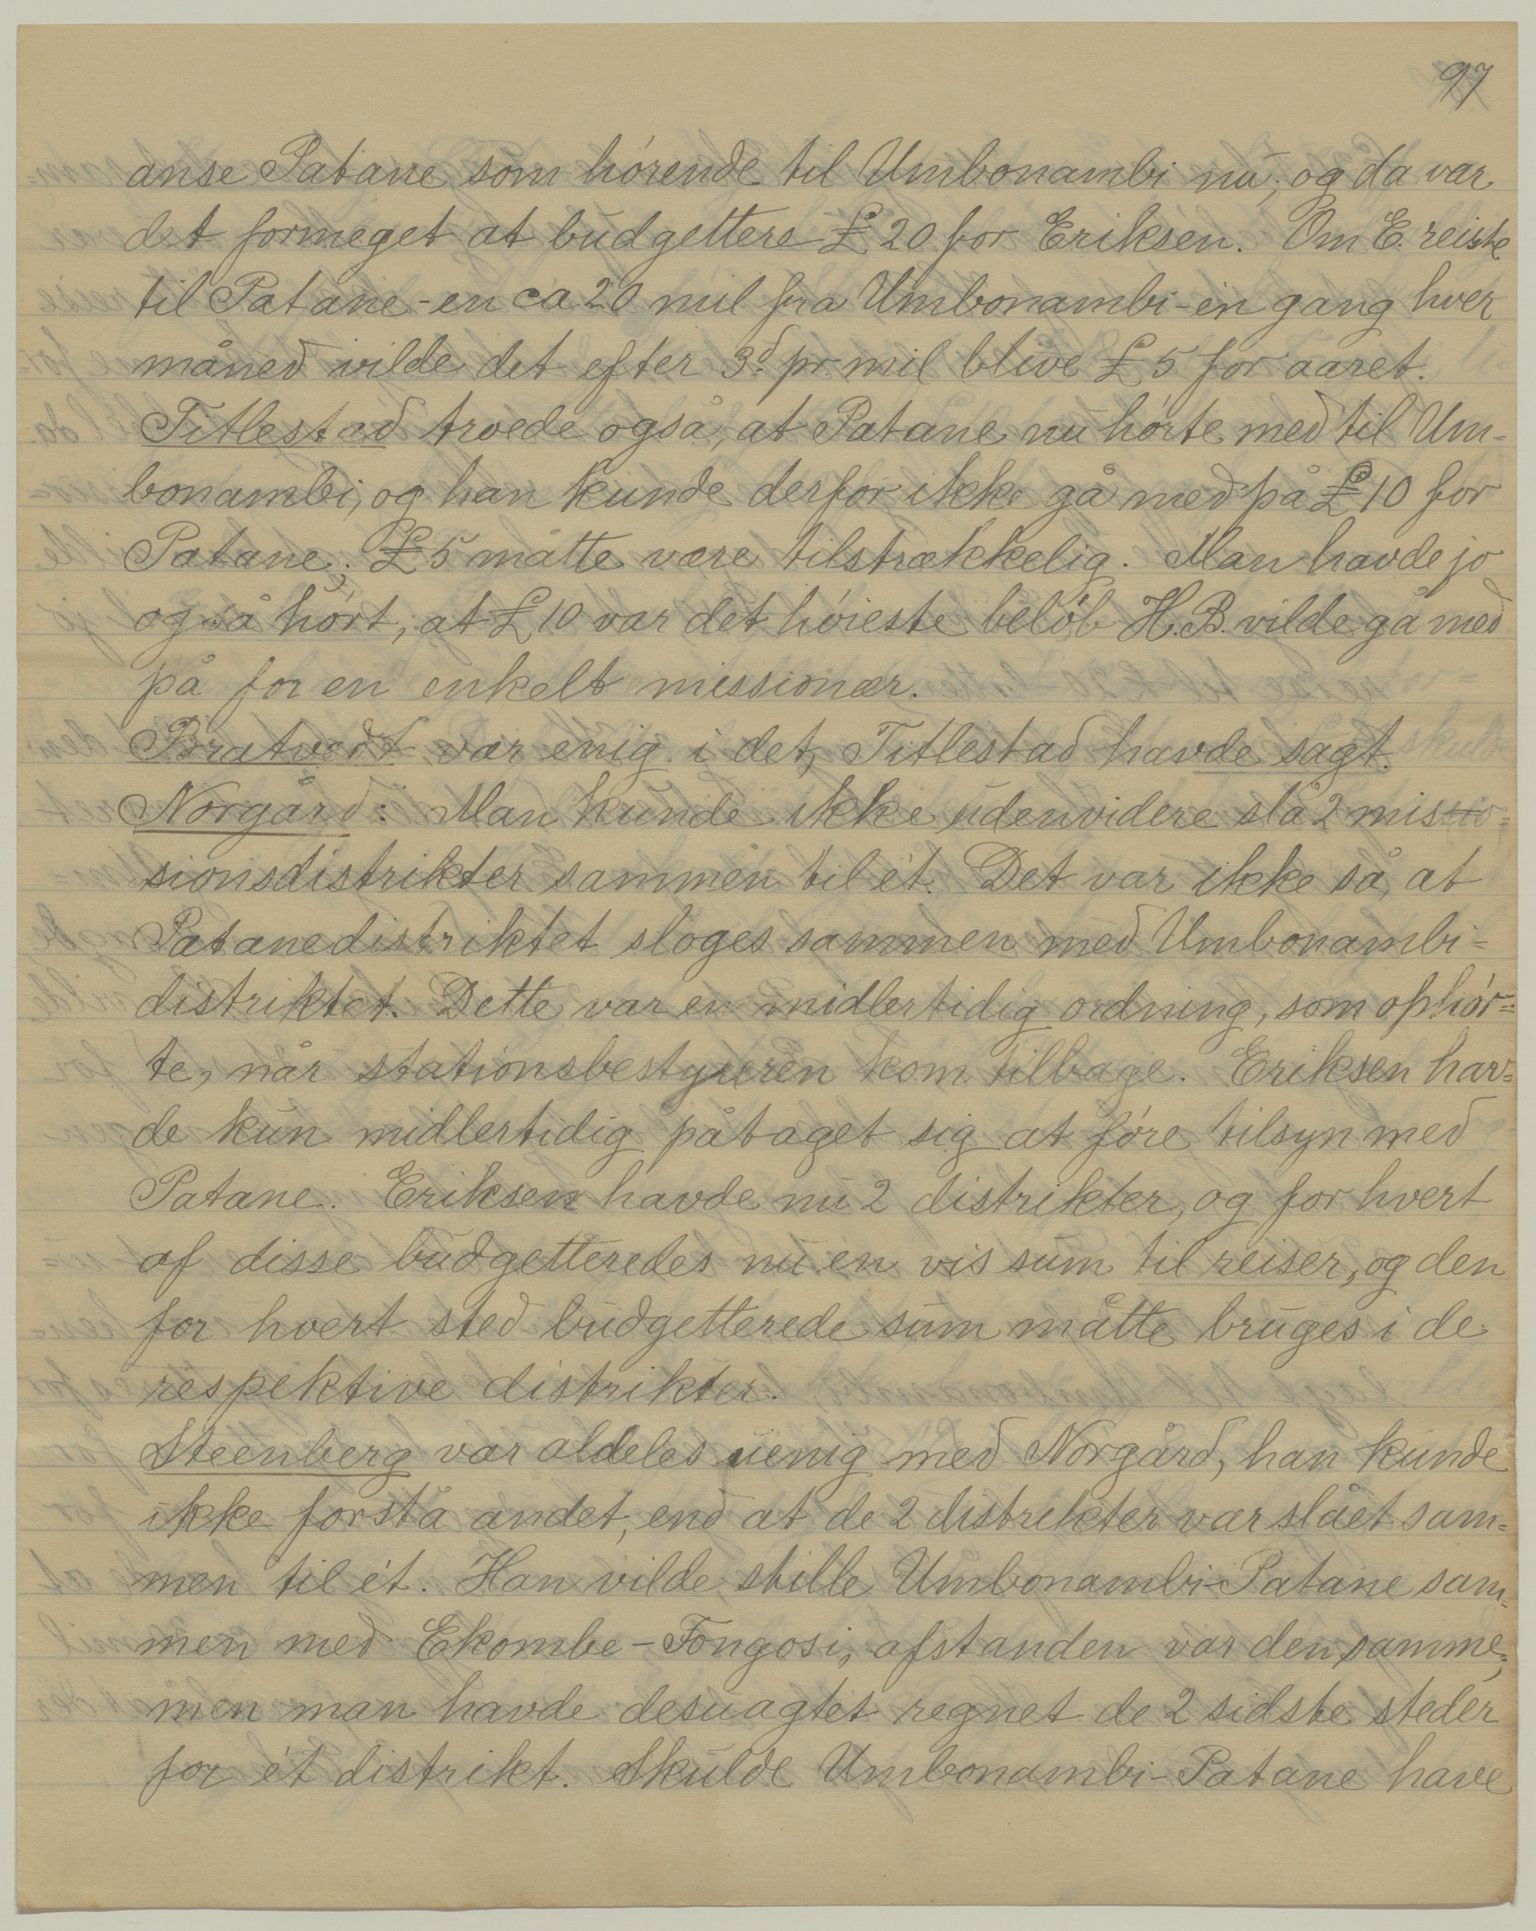 97
anse Patane som hörende til Umbonambi nu; og da var
det formeget at budgettere £ 20 for Eriksen. Om E. reiste
til Patane - en ca 20 mil fra Umbonambi - én gang hver
måned vilde det efter 3d. pr. mil blive £ 5 for aaret.
Titlestad troede også, at Patane nu hörte med til Um-
bonambi, og han kunde derfor ikke gå med på £ 10 for
Patane; £ 5 måtte være tilstrækkelig. Man havde jo
også hört, at £ 10 var det höieste belöb H.B. vilde gå med
på for en enkelt missionær.
Bratvedt var enig i det, Titlestad havde sagt.
Norgård: Man kunde ikke udenvidere slå 2 missio-
sionsdistrikter sammen til ét. Det var ikke så, at
Patanedistriktet sloges sammen med Umbonambi-
distriktet. Dette var en midlertidig ordning, som ophör-
te, når stationsbestyreren kom tilbage. Eriksen hav-
de kun midlertidig påtaget sig at före tilsyn med
Patane. Eriksen havde nu 2 distrikter, og for hvert
af disse budgetteredes nu en vis sum til reiser, og den
for hvert sted budgetterede sum måtte bruges i de
respektive distrikter.
Steenberg var aldeles uenig med Norgård, han kunde
ikke forstå andet, end at de 2 distrikter var slået sam-
men til ét. Han vilde stille Umbonambi-Patane sam-
men med Ekombe - Fongosi, afstanden var den samme;
men man havde desuagtet regnet de 2 sidste steder
for ét distrikt. Skulde Umbonambi-Patane have